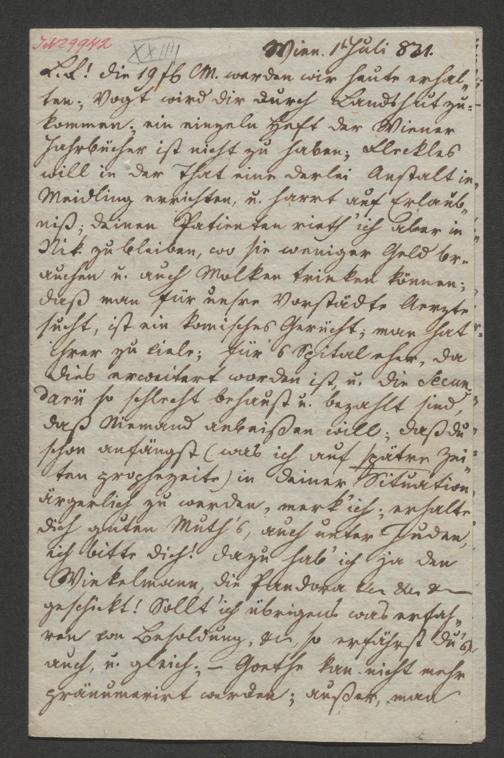 JN 29942
XXIIII
Wien. 1t Juli 831.
L. F.! die 19 f 6 CM. werden wir heute erhal-
ten; Vogt wird dir durch Landshut zu-
kommen; ein einzeln Heft der Wiener
Jahrbücher ist nicht zu haben; Fleckles
will in der That eine derlei Anstalt in
Meidling errichten, u. harrt auf Erlaub-
niß; deinen Patienten rieth' ich aber in
Nik. zu bleiben, wo sie weniger Geld br-
auchen u. auch Molken trinken können;
daß man für unsre Vorstädte Aerzte
sucht, ist ein komisches Gerücht; man hat
ihrer zu viele; für's Spital eher, da
dies erweitert worden ist, u. die Secun-
darii so schlecht behaust u. bezahlt sind,
daß Niemand anbeißen will; daß du
schon anfängst (was ich auf spätre Zei-
ten prophezeite) in deiner Situation
ärgerlich zu werden, merk' ich; erhalte
dich guten Muth's, auch unter Juden,
ich bitte dich! dazu hab' ich ja den
Winkelmann, die Pandora etc etc etc
geschickt! Sollt' ich übrigens was erfah-
ren von Besoldung, etc, so erfährst Du's
auch, u. gleich; – Goethe kan nicht mehr
pränumerirt werden; außer, man